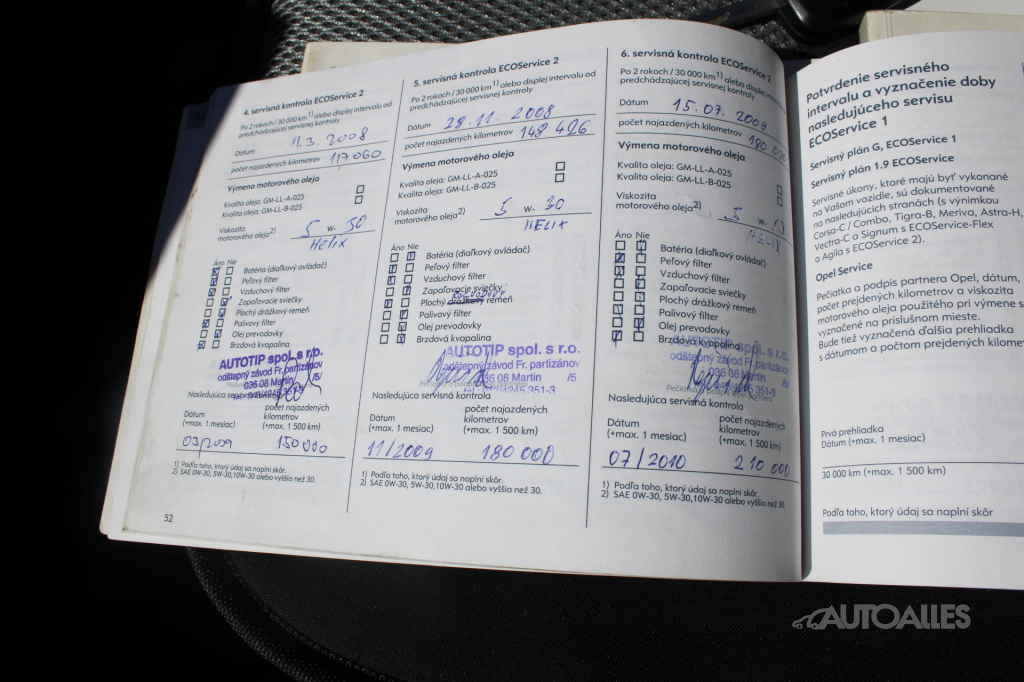 4. servisná kontrola ECOService 2
Po 2 rokoch / 30 000 km1) alebo displej intervalu od
predchádzajúcej servisnej kontroly
Dátum 11.3. 2008
počet najazdených kilometrov 117 060
Výmena motorového oleja
Kvalita oleja: GM-LL-A-025
Kvalita oleja: GM-LL-B-025
Viskozita
motorového oleja2) 5 W- 30
HELIX
Áno Nie
Batéria (diaľkový ovládač)
Peľový filter
Vzduchový filter
Zapaľovacie sviečky
Plochý drážkový remeň
Palivový filter
Olej prevodovky
Brzdová kvapalina
AUTOTIP spol. s r.o.
odštepný závod Fr. partizánov
036 08 Martin /5/
Nasledujúca servisná kontrola
Dátum
(+max. 1 mesiac)
počet najazdených
kilometrov
(+max. 1 500 km)
03/2009 150 000
1) Podľa toho, ktorý údaj sa naplní skôr.
2) SAE 0W-30, 5W-30,10W-30 alebo vyššia než 30.
52
5. servisná kontrola ECOService 2
Po 2 rokoch / 30 000 km1) alebo displej intervalu od
predchádzajúcej servisnej kontroly
Dátum 28.11. 2008
počet najazdených kilometrov 148 426
Výmena motorového oleja
Kvalita oleja: GM-LL-A-025
Kvalita oleja: GM-LL-B-025
Viskozita
motorového oleja2) 5 W- 30
HELIX
Áno Nie
Batéria (diaľkový ovládač)
Peľový filter
Vzduchový filter
Zapaľovacie sviečky
Plochý drážkový remeň
Palivový filter
Olej prevodovky
Brzdová kvapalina
AUTOTIP spol. s r.o.
odštepný závod Fr. partizánov
036 08 Martin /5
Nasledujúca servisná kontrola
Dátum
(+max. 1 mesiac)
počet najazdených
kilometrov
(+max. 1 500 km)
11/2009 180 000
1) Podľa toho, ktorý údaj sa naplní skôr.
2) SAE 0W-30, 5W-30,10W-30 alebo vyššia než 30.
6. servisná kontrola ECOService 2
Po 2 rokoch / 30 000 km1) alebo displej intervalu od
predchádzajúcej servisnej kontroly
Dátum 15.07. 2009
počet najazdených kilometrov 180
Výmena motorového oleja
Kvalita oleja: GM-LL-A-025
Kvalita oleja: GM-LL-B-025
Viskozita
motorového oleja2) 5 W-
HELIX
Áno Nie
Batéria (diaľkový ovládač)
Peľový filter
Vzduchový filter
Zapaľovacie sviečky
Plochý drážkový remeň
Palivový filter
Olej prevodovky
Brzdová kvapalina
spol. s r.o.
odštepný závod Fr. partizánov
036 08 Martin /5/
Nasledujúca servisná kontrola
Dátum
(+max. 1 mesiac)
počet najazdených
kilometrov
(+max. 1 500 km)
07/2010 210 000
1) Podľa toho, ktorý údaj sa naplní skôr.
2) SAE 0W-30, 5W-30,10W-30 alebo vyššia než 30.
Potvrdenie servisného
intervalu a vyznačenie doby
nasledujúceho servisu
ECOService 1
Servisný plán G, ECOService 1
Servisný plán 1.9 ECOService
Servisné úkony, ktoré majú byť vykonané
na Vašom vozidle, sú dokumentované
na nasledujúcich stranách (s výnimkou
Corsa-C / Combo, Tigra-B, Meriva, Astra-H,
Vectra-C a Signum s ECOService-Flex
a Agila s ECOService 2).
Opel Service
Pečiatka a podpis partnera Opel, dátum,
počet prejdených kilometrov a viskozita
motorového oleja použitého pri výmene s
vyznačené na príslušnom mieste.
Bude tiež vyznačená ďalšia prehliadka
s dátumom a počtom prejdených kilomet
Prvá prehliadka
Dátum (+max. 1 mesiac)
30 000 km (+max. 1 500 km)
Podľa toho, ktorý údaj sa naplní skôr
AUTOALLES